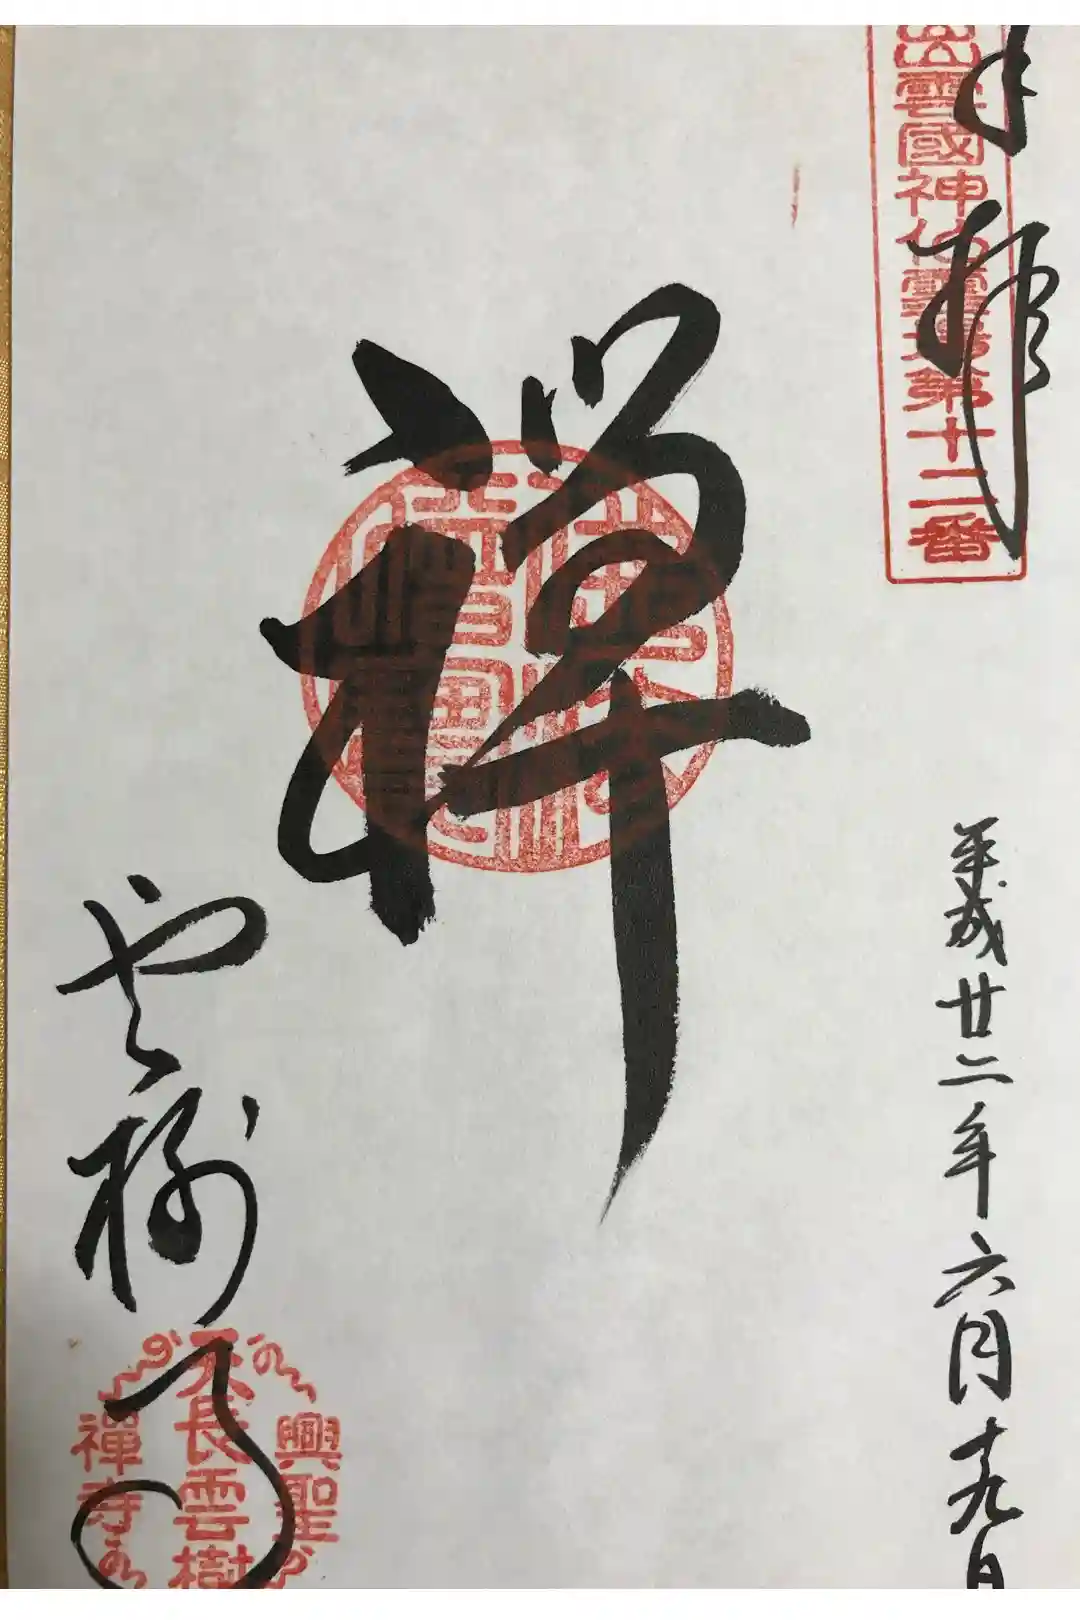 奉拝
出雲國神仏霊場第十二番
平成廿二年六月十九日
禅
雲樹寺
興聖
天長雲樹
禅寺